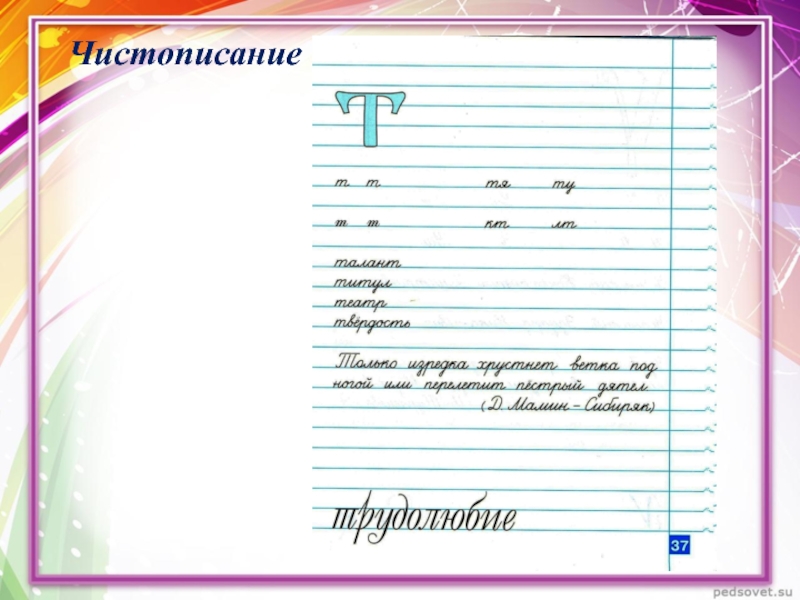 Чистописание
Т
т т тя ту
т т кт лт
талант
титул
театр
твёрдость
Только изредка хрустнет ветка под
ногой или перелетит пёстрый дятел.
(Д. Мамин – Сибиряк)
трудолюбие
37
pedsovet.su